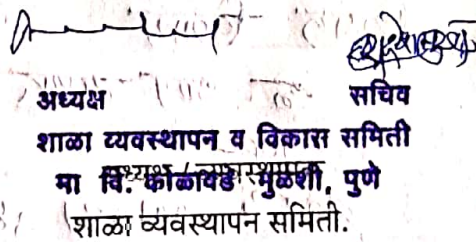 अध्यक्ष सचिव
शाळा व्यवस्थापन व विकास समिती
मा वि. कोळावडे मुळशी, पुणे
अध्यक्ष /
शाळा व्यवस्थापन समिती.